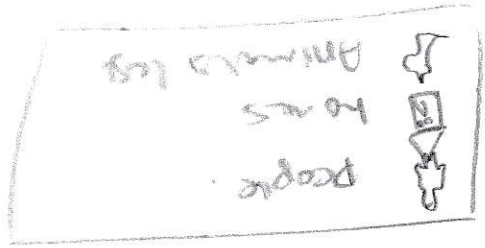 People
homes
Animals leg